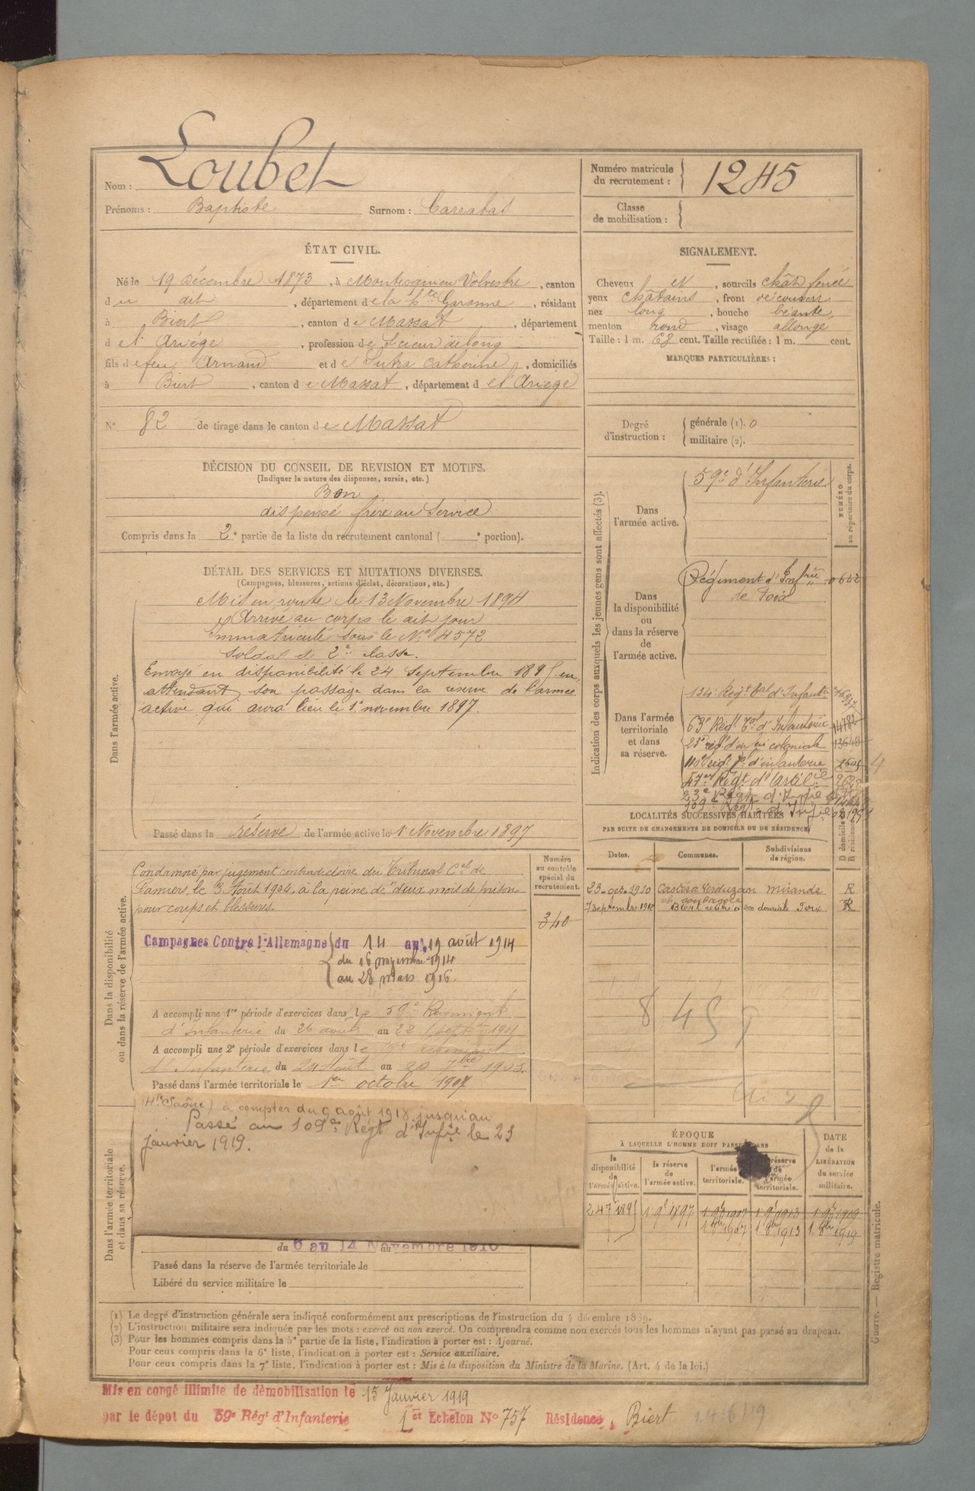 Nom : Loubet
Prénoms : Baptiste Surnom : Carrabat
Numéro matricule du recrutement : 1245
Classe de mobilisation :
ÉTAT CIVIL.
Né le 19 décembre 1873, à Montesquieu Volvestre, canton
du dit, département de la Hte Garonne, résidant
à Biert, canton de Massat, département
de l'Ariège, profession de Scieur de long
fils de feu Arnaud et de Sutra Catherine, domiciliés
à Biert, canton de Massat, département de l'Ariège
N° 82 de tirage dans le canton de Massat
SIGNALEMENT.
Cheveux et, sourcils chât foncé
yeux châtains, front découvert
nez long, bouche béante,
menton rond, visage allongé
Taille : 1 m. 62 cent. Taille rectifiée : 1 m. cent.
MARQUES PARTICULIÈRES :
Degré d'instruction : générale (1). 0
militaire (2).
DÉCISION DU CONSEIL DE REVISION ET MOTIFS.
(Indiquer la nature des dispenses, sursis, etc.)
Bon
dispensé frère au Service
Compris dans la 2e partie de la liste du recrutement cantonal ( e portion).
DÉTAIL DES SERVICES ET MUTATIONS DIVERSES.
(Campagnes, blessures, actions d'éclat, décorations, etc.)
Dans l'armée active.
Mis en route le 13 Novembre 1894
Arrivé au corps le dit jour
Immatriculé sous le N° 4572
Soldat de 2e classe.
Envoyé en disponibilité le 24 Septembre 1895 en
attendant son passage dans la réserve de l'armée
active qui aura lieu le 1er novembre 1897.
Passé dans la réserve de l'armée active le 1 Novembre 1897
Indication des corps auxquels les jeunes gens sont affectés (3).
NUMÉRO au répertoire du corps.
Dans l'armée active.
59e d'Infanterie
Dans la disponibilité ou dans la réserve de l'armée active.
Régiment d'Infrie
de Foix
Dans l'armée territoriale et dans sa réserve.
134e Régt tal d'Infantie
63e Régt Tal d'Infanterie
coloniale
d'infanterie
Régt d'Artil
LOCALITÉS SUCCESSIVES HABITÉES
PAR SUITE DE CHANGEMENTS DE DOMICILE OU DE RÉSIDENCE
Dates. Communes. Subdivisions de région. D domicile R résidence
23 oct. 1910 Castéra Verduzan Mirande R
7 septembre 1910 Biert rentré à son domicile Foix R
Dans la disponibilité ou dans la réserve de l'armée active.
Numéro au contrôle spécial du recrutement.
340
Condamné par jugement contradictoire du Tribunal Cel de
Pamiers, le 3 Août 1904, à la peine de deux mois de prison
pour coups et blessures.
Campagnes Contre l'Allemagne du 14 au 19 août 1914
du 16 novembre 1914
au 28 mars 1916.
A accompli une 1re période d'exercices dans le 59e Régiment
d'Infanterie du 26 août au 22 Septre 1901
A accompli une 2e période d'exercices dans le
d'Infanterie du 24 août au 20 7bre 1903
Passé dans l'armée territoriale le 1er octobre 1907
Dans l'armée territoriale et dans sa réserve.
(Hte Saône) à compter du 9 août 1918 jusqu'au
Passé au 109e Régt d'Infie le 23
janvier 1919.
du 6 au 14 Novembre 1910
Passé dans la réserve de l'armée territoriale le
Libéré du service militaire le
ÉPOQUE
À LAQUELLE L'HOMME DOIT PASSER DANS
la disponibilité de l'armée active. la réserve de l'armée active. l'armée territoriale. la réserve de l'armée territoriale.
DATE de la LIBÉRATION du service militaire.
24 7 1895 1 9 1897 1 9 1907 1 9 1913 1 9 1919
1 8bre 1907 1 8bre 1913 1 8bre 1919
(1) Le degré d'instruction générale sera indiqué conformément aux prescriptions de l'instruction du 4 décembre 1889.
(2) L'instruction militaire sera indiquée par les mots : exercé ou non exercé. On comprendra comme non exercés tous les hommes n'ayant pas passé au drapeau.
(3) Pour les hommes compris dans la 5e partie de la liste, l'indication à porter est : Ajourné.
Pour ceux compris dans la 6e liste, l'indication à porter est : Service auxiliaire.
Pour ceux compris dans la 7e liste, l'indication à porter est : Mis à la disposition du Ministre de la Marine. (Art. 4 de la loi.)
Guerre. — Registre matricule.
Mis en congé illimité de démobilisation le 15 Janvier 1919
par le dépot du 59e Régt d'Infanterie 1er Echelon N° 757 Résidence, Biert